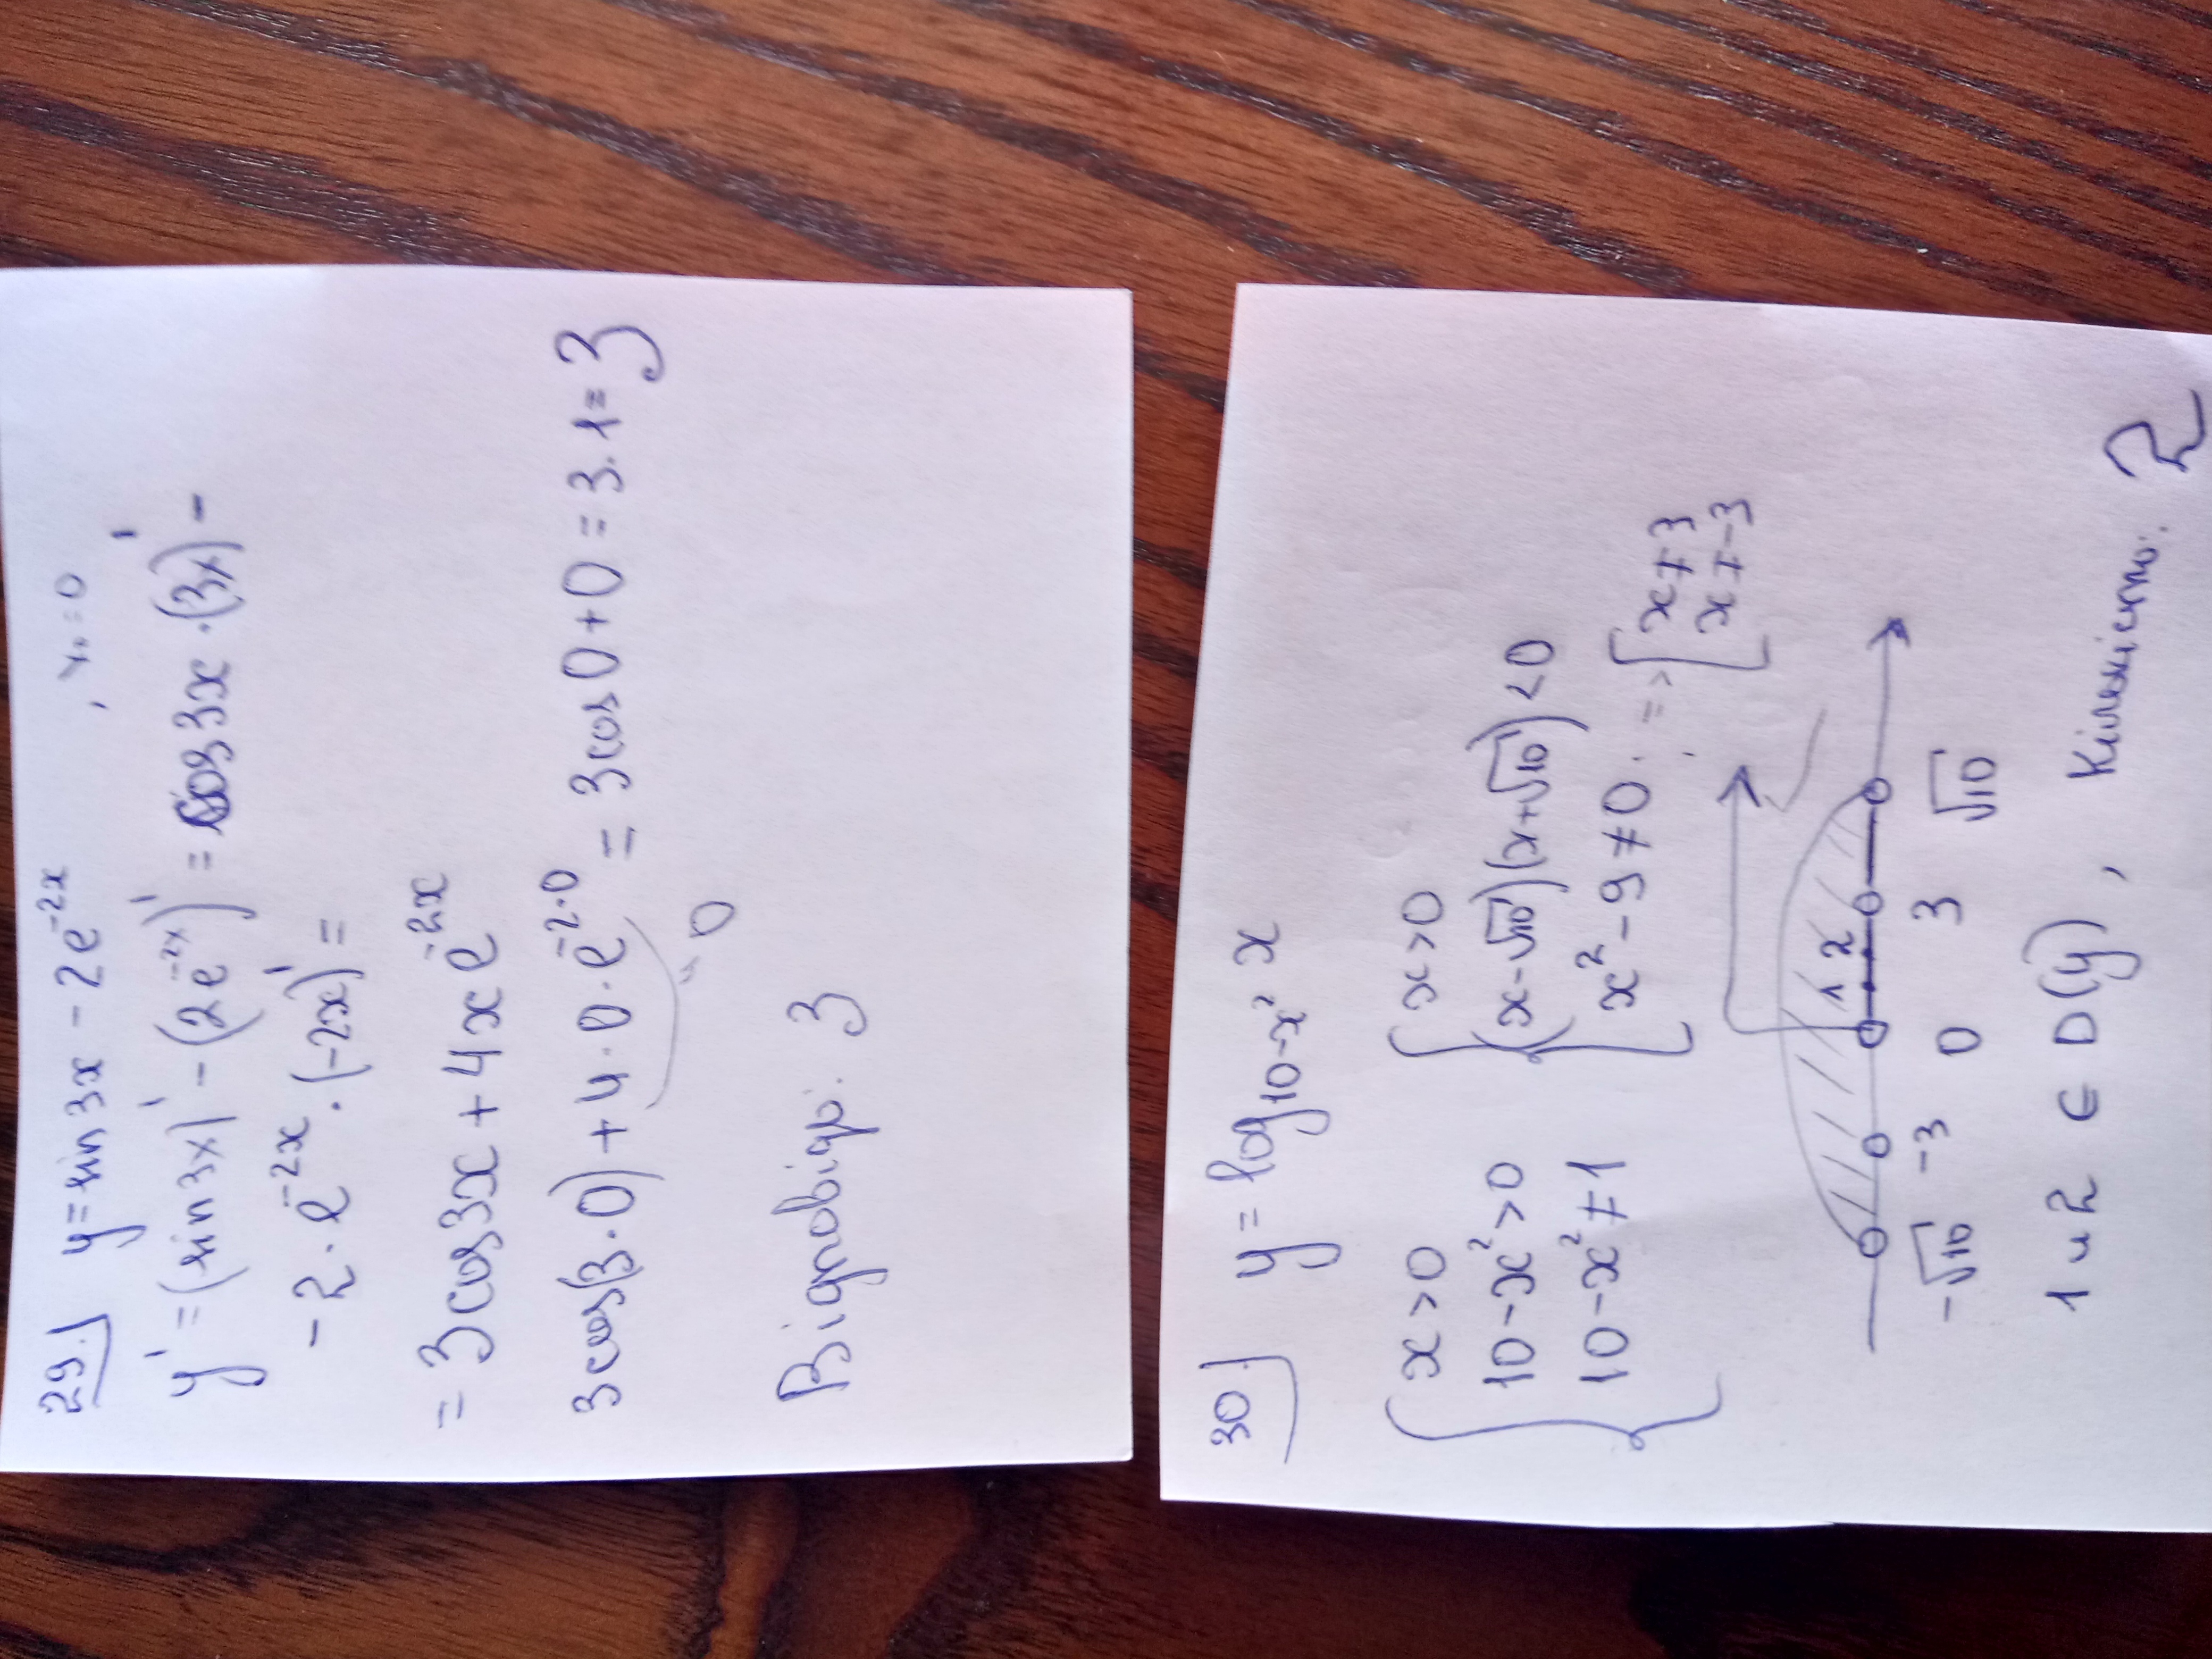 29.) y = sin 3x - 2e^{-2x}, x₀ = 0
y' = (sin 3x)' - (2e^{-2x})' = cos 3x · (3x)' -
- 2 · e^{-2x} · (-2x)' =
= 3cos 3x + 4x e^{-2x}
3cos(3·0) + 4·0·e^{-2·0} = 3cos 0 + 0 = 3·1 = 3
" 0
Відповідь: 3
30.) y = log_{10-x²} x
{ x > 0 { x > 0
10 - x² > 0 (x-√10)(x+√10) < 0
10 - x² ≠ 1 x² - 9 ≠ 0 => [ x ≠ 3
x ≠ -3
1 2
-√10 -3 0 3 √10
1 и 2 ∈ D(y), Кількість: 2